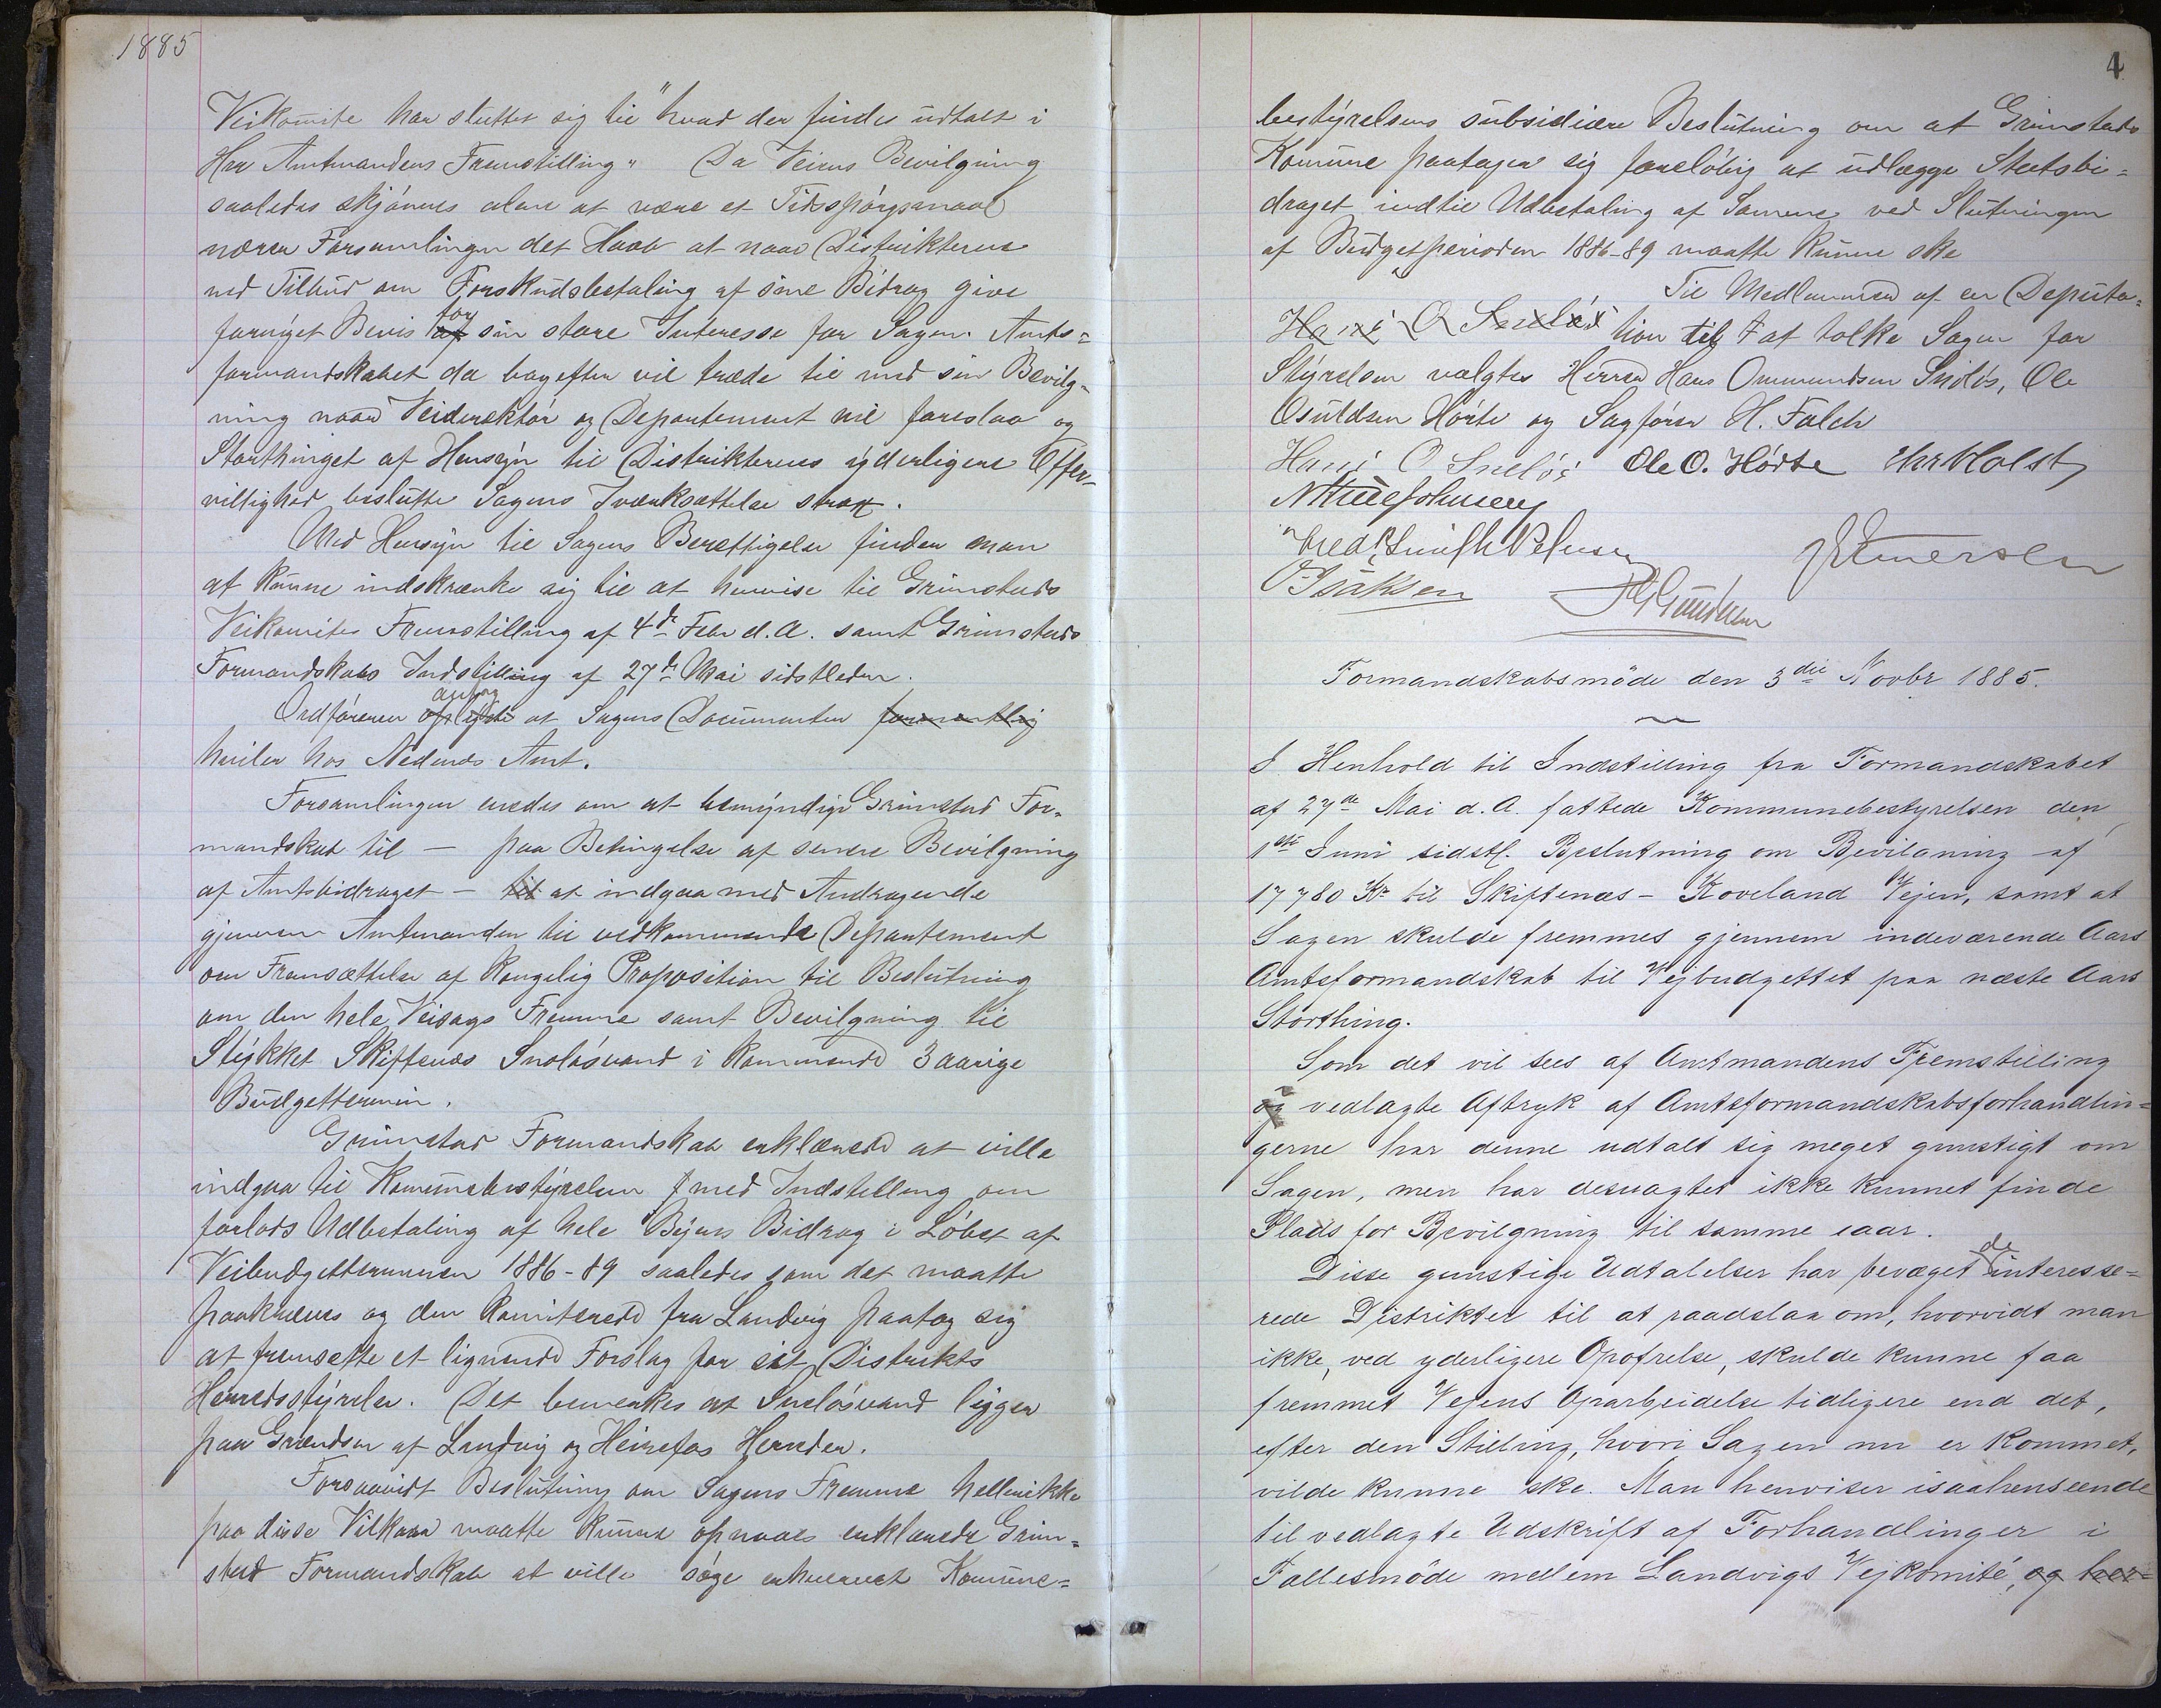 1885
Veikomite har sluttet sig til "hvad der findes udtalt i
Hrr Amtmandens Fremstilling" Da Veiens Bevilgning
saaledes skjönnes alene at være et Tidsspörgsmaal
nærer Forsamlingen det Haab at naar Distrikterne
ved Tilbud om Forskudsbetaling af sine Bidrag give
fornyet Bevis af for sin store Interesse for Sagen. Amts=
formandskabet da bagefter vil træde til med sin Bevilg=
ning naar Veidirektör og Departement vil foreslaa og
Storthinget af Hensyn til Distrikternes yderligere Offer-
villighed beslutte Sagens Iværksættelse strax.
Med Hensyn til Sagens Berettigelse finder man
at kunne indskrænke sig til at henvise til Grimstads
Veikomites Fremstilling af 4de Febr d.A. samt Grimstads
Formandskabs Indstilling af 27de Mai sidstleden.
Ordföreren oplyste antog at Sagens Documenter formentlig
hviler hos Nedenes Amt.
Forsamlingen enedes om at bemyndige Grimstad For=
mandskab til — paa Betingelse af senere Bevilgning
af Amtsbidraget — til at indgaa med Andragende
gjennem Amtmanden til vedkommende Departement
om Fremsættelse af Kongelig Proposition til Beslutning
om den hele Veisags Fremme samt Bevilgning til
Stykket Skiftenæs Snelösvand i kommende 3 aarige
Budgettermin.
Grimstad Formandskab erklærede at ville
indgaa til Kommunebestyrelsen med Indstilling om
forlods Udbetaling af hele Byens Bidrag i Löbet af
Veibudgetterminen 1886-89 saaledes som det maatte
paakræves og den Komiterede fra Landvig paatog sig
at fremsætte et lignende Forslag for sit Distrikts
Herredsstyrelse. Det bemerkes at Snelösvand ligger
paa Grændsen af Landvig og Heirefos Herreder.
Forsaavidt Beslutning om Sagens Fremme hellerikke
paa disse Vilkaar maatte kunne opnaaes erklærede Grim=
stad Formandskab at ville söge erhvervet Komune=
4
bestyrelsens subsidiære Beslutning om at Grimstads
Komune paatager sig foreløbig at udlægge Statsbi=
draget indtil Udbetaling af Samme ved Slutningen
af Budgetperioden 1886-89 maatte kunne ske
Til Medlemmer af en Deputa=
Hans O Snelös tion til at tolke Sagen for
Styrelsen valgtes Herrer Hans Ommundsen Snelös, Ole
Osuldsen Hörte og Sagförer H. Falch
Hans O Snelös Ole O. Hörte Chr Holst
Fredk Smith Petersen
O Isaksen
Formandskabsmöde den 3die Novbr 1885.
I Henhold til Indstilling fra Formandskabet
af 27de Mai d.A. fattede Kommunebestyrelsen den
1ste Juni sidstl. Beslutning om Bevilgning af
17780 Kr til Skiftenæs-Koveland Vejen, samt at
Sagen skulde fremmes gjennem indeværende Aars
Amtsformandskab til Vejbudgettet paa næste Aars
Storthing.
Som det vil sees af Amtmandens Fremstilling
og vedlagte Aftryk af Amtsformandskabsforhandlin=
gerne har denne udtalt sig meget gunstigt om
Sagen, men har desuagtet ikke kunnet finde
Plads for Bevilgning til samme iaar.
Disse gunstige Udtalelser har bevæget de interesse=
rede Distrikter til at raadslaa om, hvorvidt man
ikke, ved yderligere Opofrelse, skulde kunne faa
fremmet Vejens Oparbeidelse tidligere end det,
efter den Stilling, hvori Sagen nu er kommet,
vilde kunne ske. Man henviser isaahenseende
til vedlagte Udskrift af Forhandlinger i
Fællesmöde mellem Landvigs Vejkomité, og her=